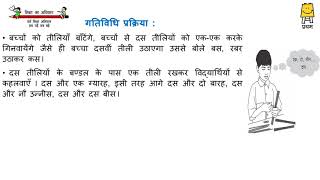 गतिविधि प्रक्रिया :
• बच्चों को तीलियाँ बटिंगे, बच्चों से दस तीलियों को एक-एक करके
गिनवायेंगे जैसे ही बच्चा दसवीं तीली उठाएगा उससे बोले बस, रबर
उठाकर कस।
• दस तीलियों के बण्डल के पास एक तीली रखकर विद्यार्थियों से
कहलवाएँ । दस और एक ग्यारह, इसी तरह आगे दस और दो बारह, दस
और नौ उन्नीस, दस और दस बीस।
प्रथम